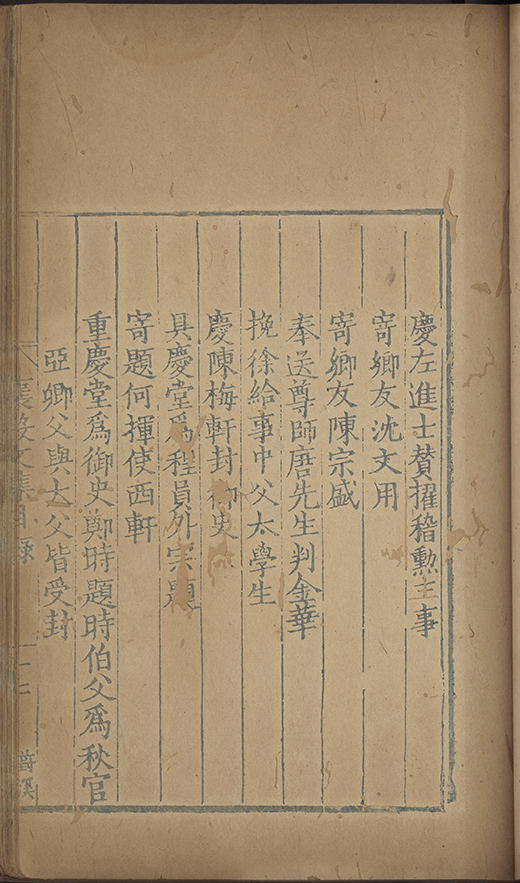 慶左進士賛擢稽勲主事
寄鄉友沈文用
寄鄉友陳宗盛
奉送尊師唐先生判金華
挽徐給事中父太學生
慶陳梅軒封御史
具慶堂爲程員外宗題
寄題何揮使西軒
重慶堂爲御史鄭時題時伯父爲秋官
亞卿父與大父皆受封
文集目錄